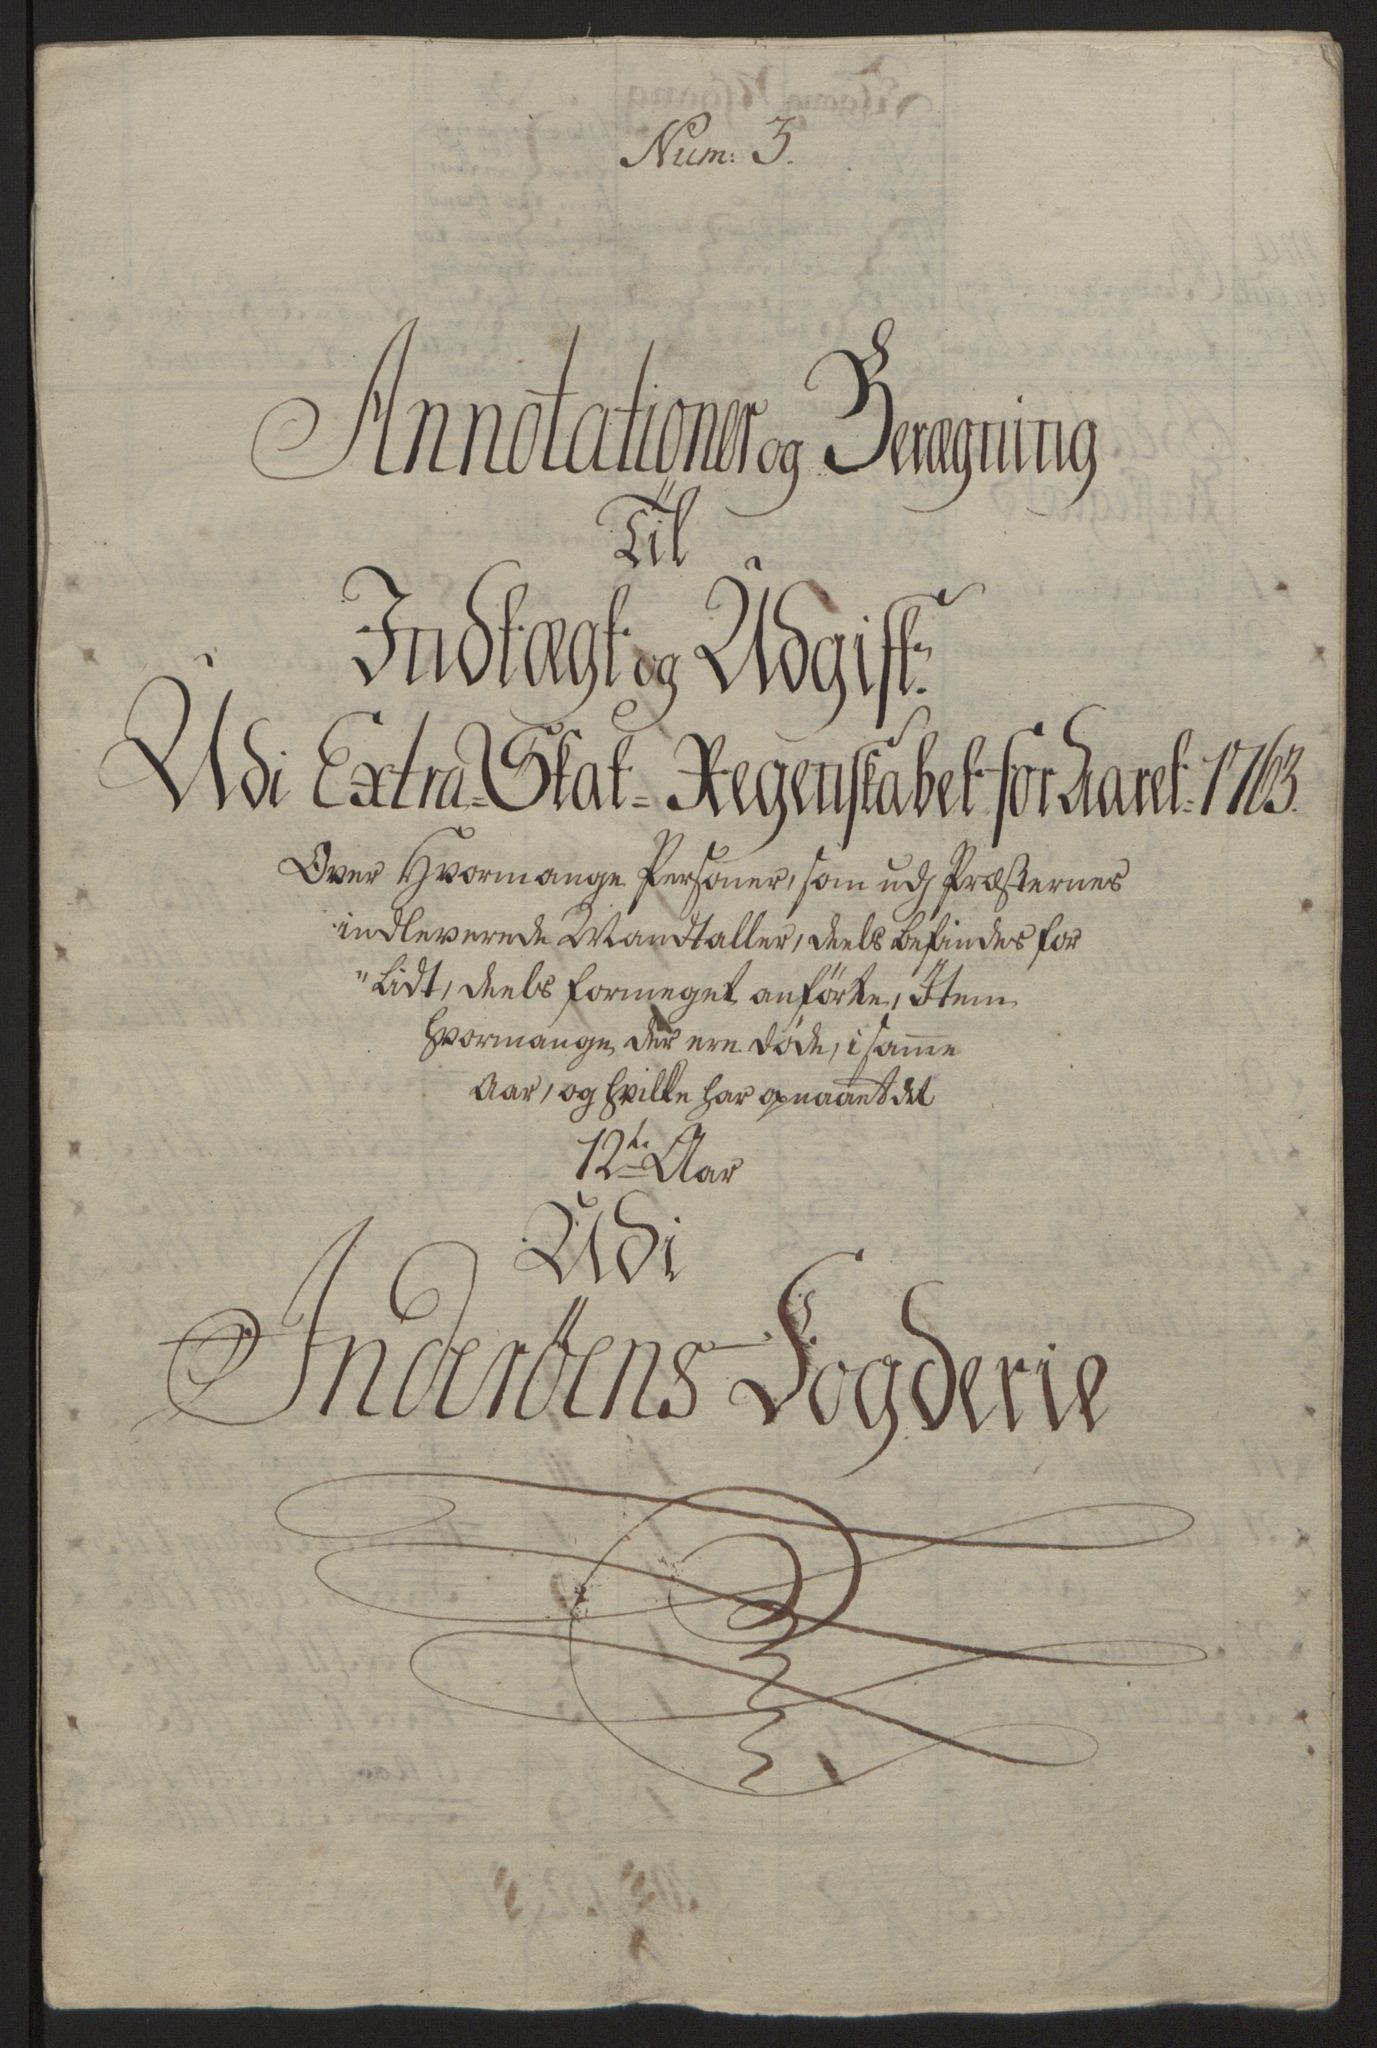 Num: 3.
Annotationer og Berægning
Til
Indtægt og Udgift
Udi Extra-Skat-Regenskabet for Aaret 1763.
Over Hvormange Personer, som udj Præsternes
indleverede Mandtaller, deels befindes for
"Lidt, deels formeget anførte, Item
hvormange der ere døde, i samme
Aar, og hvilke har opnaaet det
12te Aar
Udi
Inderöens Fogderie